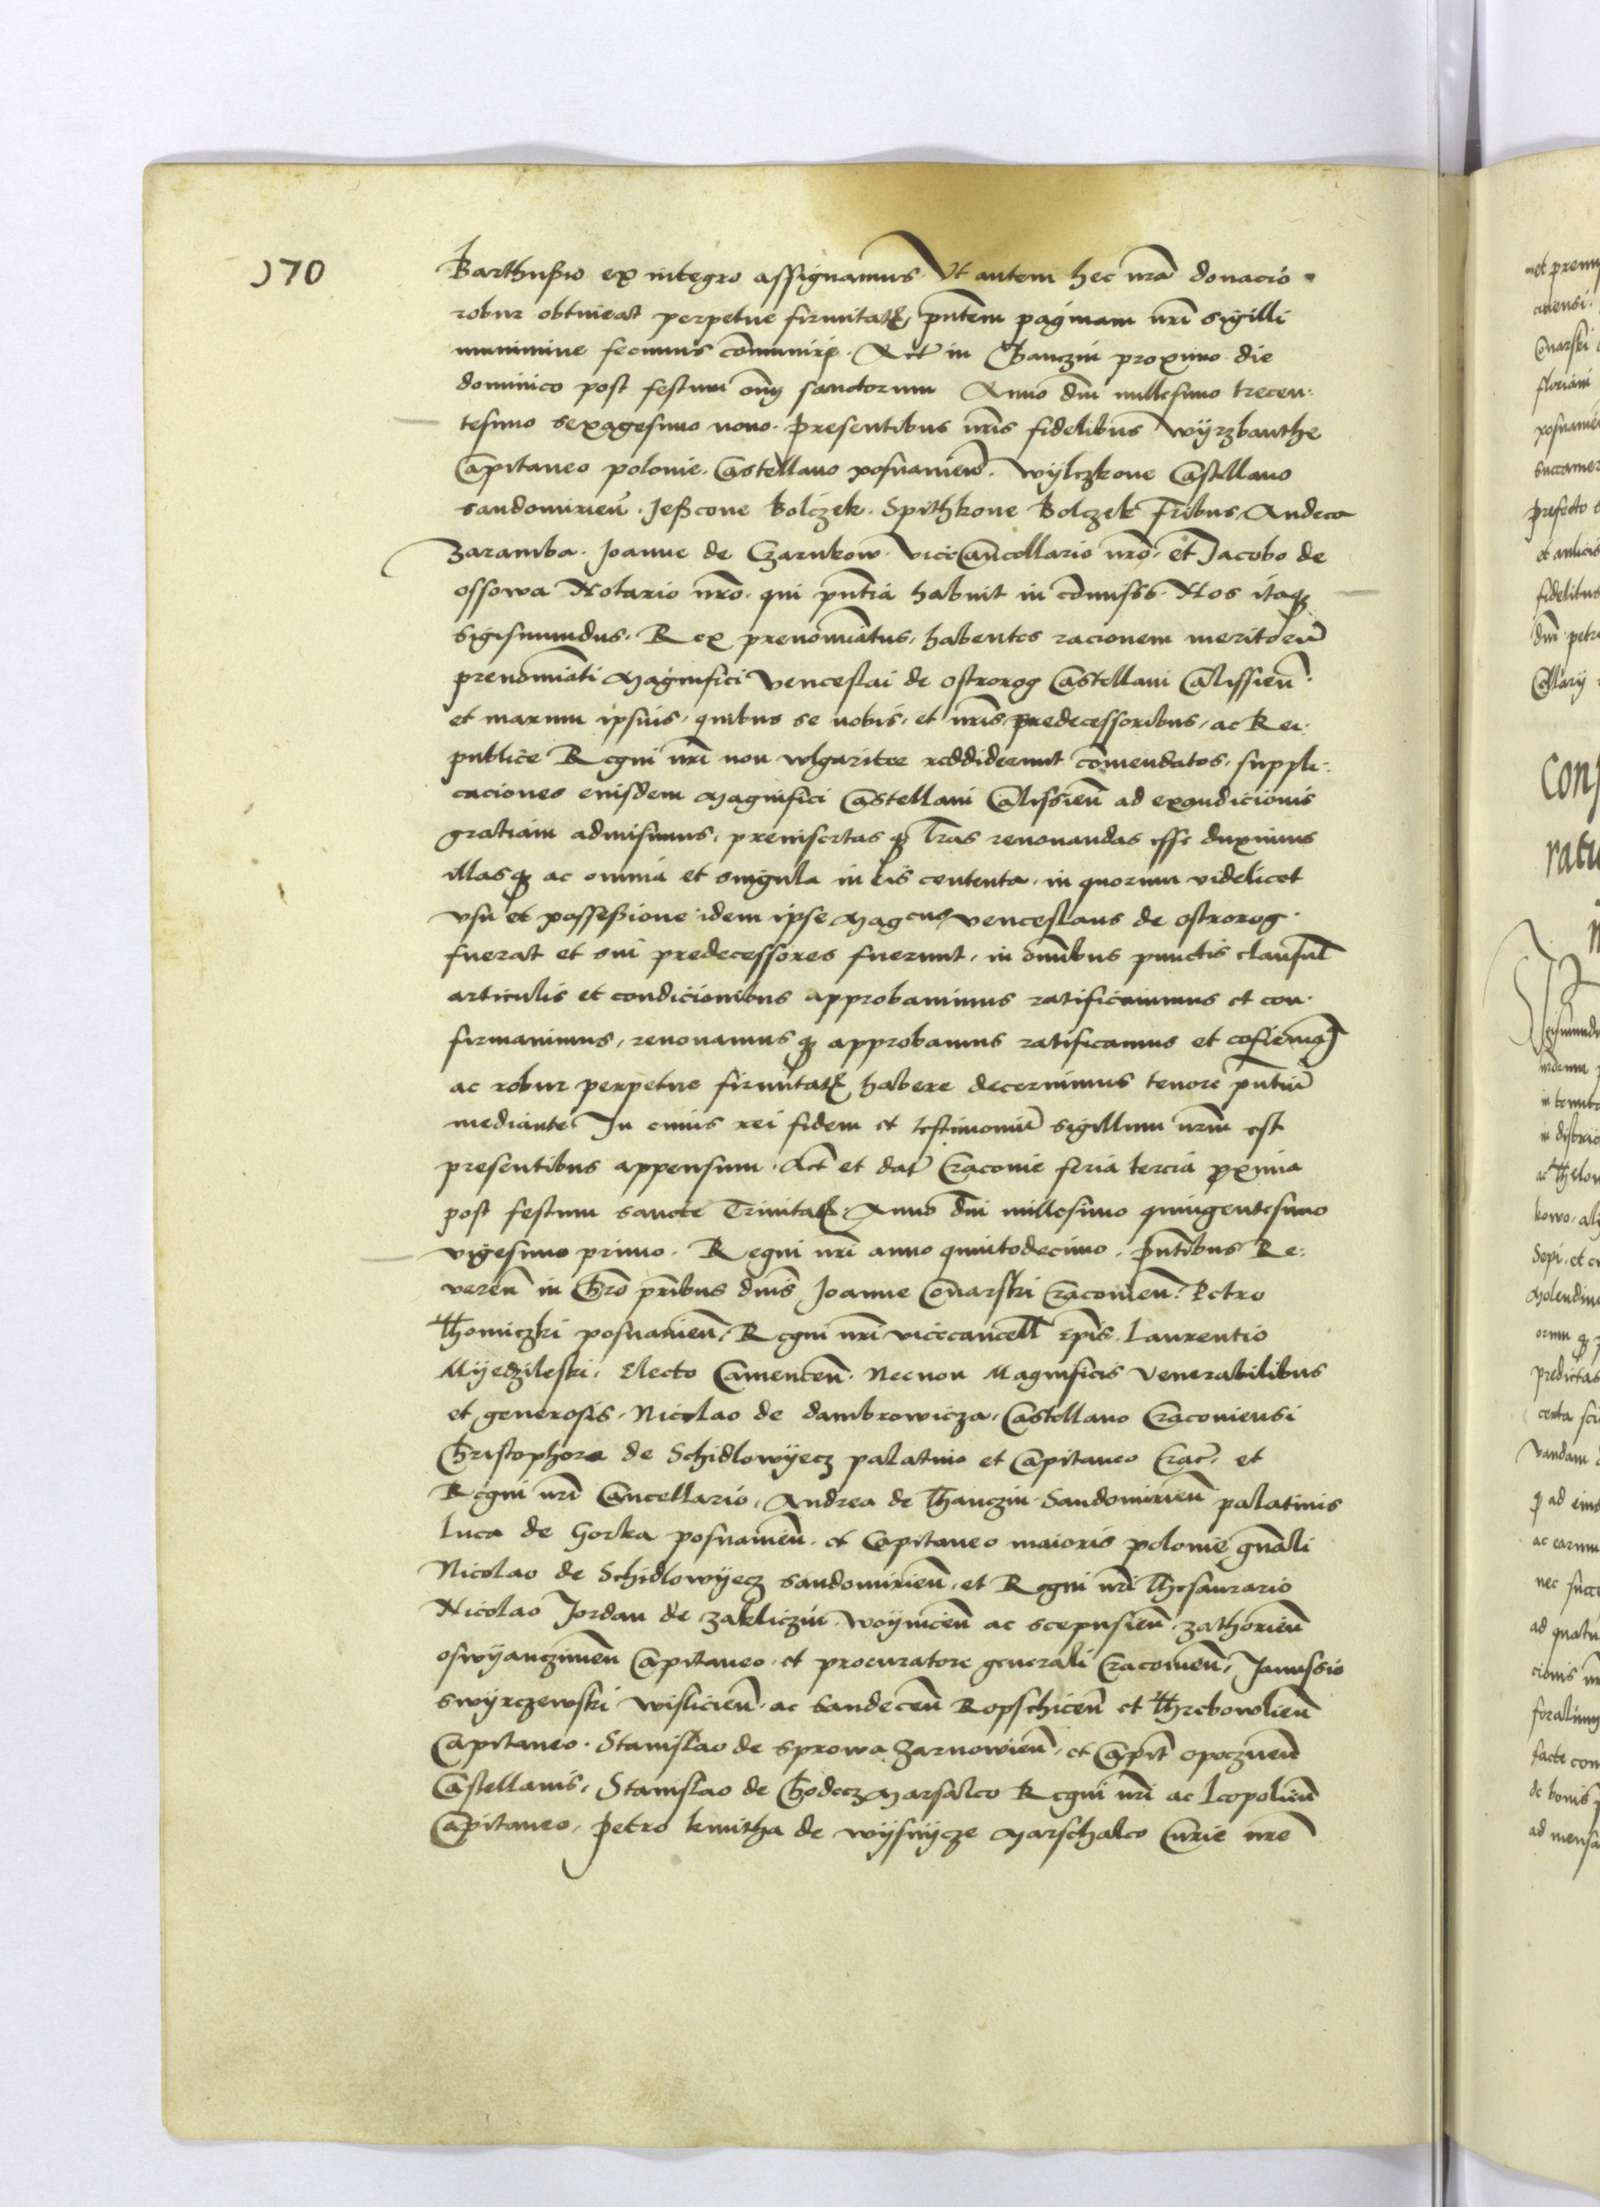 370
Barthussio ex integro assignamus. Ut autem hec nra donacio
robur obtineat perpetue firmitatis, pntem paginam nri sigilli
munimine fecimus comunire. Act in Chanczin proximo die
dominico post festum omnium sanctorum Anno dni millesimo trecen:
tesimo sexagesimo nono. Presentibus nris fidelibus Wyrzbanthe
Capitaneo polonie. Castellano posnanien. Wylczkone Castellano
sandomirien. Jesscone Bolczek. Spithkone Bolczek fribus Andrea
Zaramba. Joanne de Czarnkow. vicecancellario nro. et Jacobo de
ossowa Notario nro. qui pntia habuit in comiss. Nos itaque
Sigismundus. Rex prenomiatus, habentes racionem meritoru
prenomiati Magnifici Venceslai de Ostrorog Castellani Calissien.
et maruum ipsius, quibus se nobis, et nris predecessoribus, ac Rei:
publice Regni nri non vlgariter reddiderunt comendatos, suppli:
caciones eiusdem Magnifici Castellani Calissien ad exaudicionis
gratiam admisimus, preinsertasque lras renouandas esse duximus
illasque ac omnia et singula in eis contenta, in quorum videlicet
vsu et possessione idem ipse Magcus Venceslaus de Ostrorog.
fuerat et sui predecessores fuerunt, in omibus punctis clausul
articulis et condicionibus approbauimus ratificauimus et con:
firmauimus, renouamusque approbamus ratificamus et cofirmam
ac robur perpetue firmitatis habere decernimus tenore pntiu
mediante In cuius rei fidem et testimoniu sigillum nrm est
presentibus appensum. Act et dat Cracouie feria tercia proxima
post festum sancte Trinitatis. Anno dni millesimo quingentesimo
vigesimo primo. Regni nri anno quintodecimo. Pntibus Re:
veren in Chro pribus dnis Joanne Conarski Cracouien. Petro
Thomiczki posnanien, Regni nri vicecancell Epis. Laurentio
Myedzileski, Electo Camencen. Necnon Magnificis Venerabilibus
et generosis, Nicolao de dambrowicza, Castellano Cracouiensi
Christophoro de Schidlowyecz palatino et Capitaneo Crac, et
Regni nri Cancellario, Andrea de Thanczin Sandomirien palatinis
Luca de Gorka posnanien. et Capitaneo maioris polonie gnali
Nicolao de Schidlowyecz sandomirien, et Regni nri Thesaurario
Nicolao Jordan de zakliczin woynicen ac scepusien. zathorien
oswyanczimen Capitaneo, et procuratore generali Cracouien, Janussio
swyrczewski wislicien. ac sandecen Ropschicen et Threbowlien
Capitaneo. Stanislao de sprowa Zarnowien, et Capit opocznen
Castellanis, Stanislao de Chodecz Marsalco Regni nri ac leopolien
Capitaneo, Petro kmitha de wysnycze Marschalco Curie nre